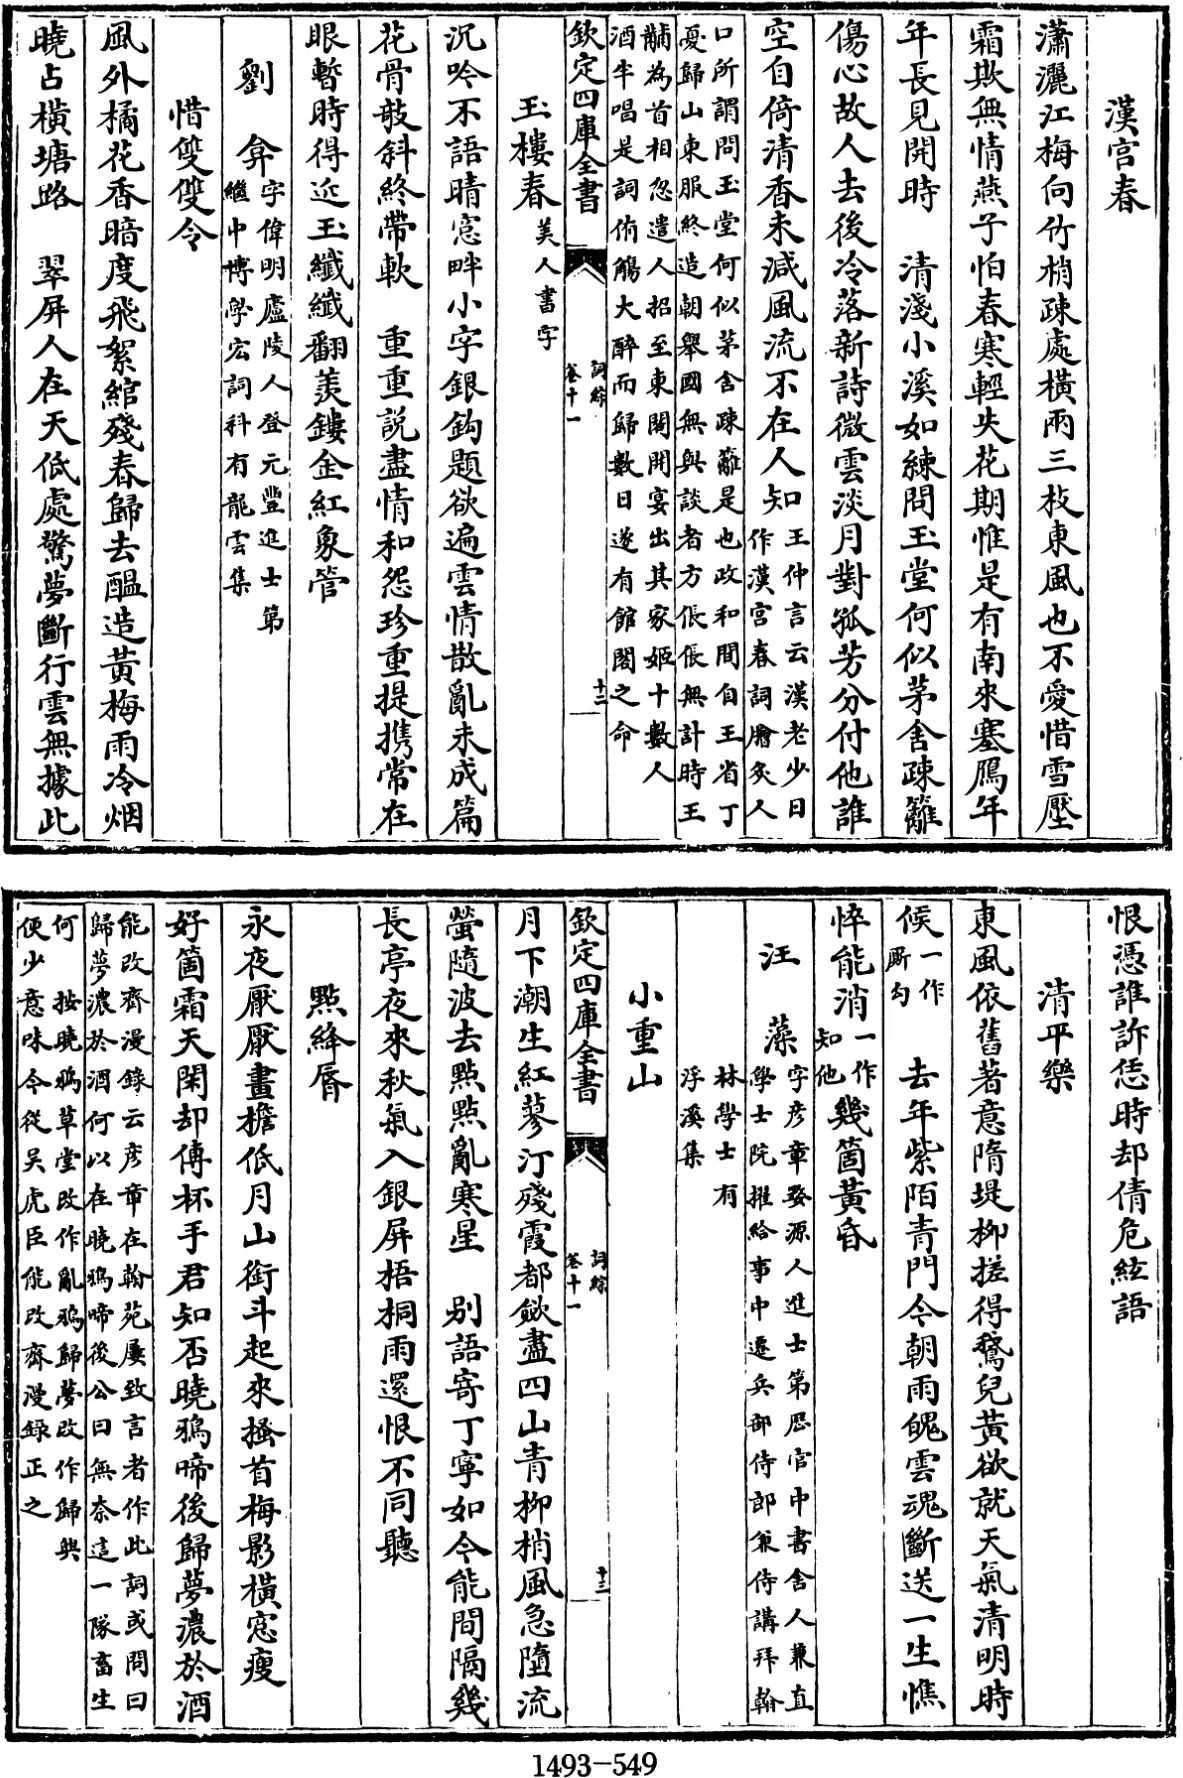 漢宮春
瀟灑江梅向竹梢疎處橫兩三枝東風也不愛惜雪壓
霜欺無情燕子怕春寒輕失花期惟是有南來塞鴈年
年長見開時　清淺小溪如練問玉堂何似茅舍疎籬
傷心故人去後冷落新詩微雲淡月對孤芳分付他誰
空自倚清香未減風流不在人知
王仲言云漢老少日
作漢宮春詞膾炙人
口所謂問玉堂何似茅舍疎籬是也政和間自王省丁
憂歸山東服終造朝舉國無與談者方倀倀無計時王
黼為首相忽遣人招至東閣開宴出其家姬十數人
酒半唱是詞侑觴大醉而歸數日遂有館閣之命
欽定四庫全書
詞綜
卷十一
十二
玉樓春美人書字
沉吟不語晴窓畔小字銀鈎題欲遍雲情散亂未成篇
花骨敧斜終帶軟　重重説盡情和怨珍重提携常在
眼暫時得近玉纖纖翻羨鏤金紅象管
劉　弇
字偉明廬陵人登元豐進士第
繼中博學宏詞科有龍雲集
惜雙雙令
風外橘花香暗度飛絮綰殘春歸去醖造黃梅雨冷烟
曉占橫塘路　翠屏人在天低處驚夢斷行雲無據此
恨憑誰訴恁時却倩危絃語
清平樂
東風依舊著意隋堤柳搓得鵞兒黃欲就天氣清明時
候
一作
厮勾
去年紫陌青門今朝雨魄雲魂斷送一生憔
悴能消
一作
知他
幾箇黃昏
汪　藻
字彥章婺源人進士第歷官中書舍人兼直
學士院擢給事中遷兵部侍郎兼侍講拜翰
林學士有
浮溪集
小重山
月下潮生紅蓼汀殘霞都斂盡四山青柳梢風急墮流
螢隨波去點點亂寒星　别語寄丁寧如今能間隔幾
長亭夜來秋氣入銀屏梧桐雨還恨不同聽
欽定四庫全書
詞綜
卷十一
十三
點絳脣
永夜厭厭畫檐低月山銜斗起來搔首梅影橫窓瘦
好箇霜天閑却傳杯手君知否曉鴉啼後歸夢濃於酒
能改齋漫錄云彥章在翰苑屢致言者作此詞或問曰
歸夢濃於酒何以在曉鴉啼後公曰無奈這一隊畜生
何　按曉鴉草堂改作亂鴉歸夢改作歸興
便少意味今從吴虎臣能改齋漫録正之
1493-549